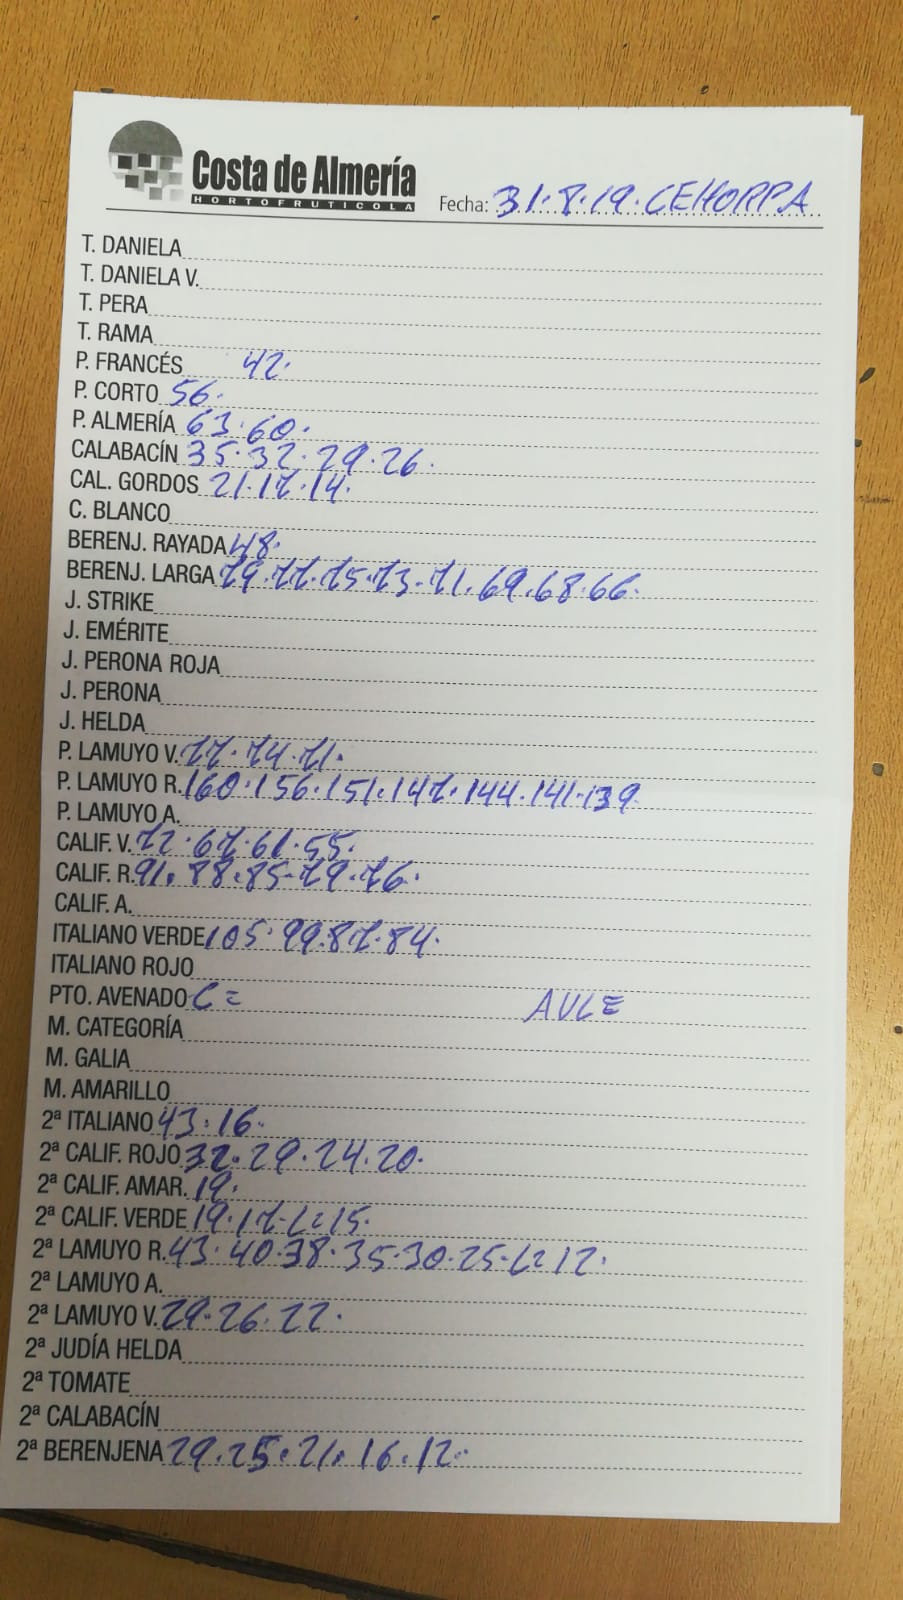 Costa de Almería
HORTOFRUTICOLA
Fecha: 31.8.19.CEHORPA
T. DANIELA
T. DANIELA V.
T. PERA
T. RAMA
P. FRANCÉS 42.
P. CORTO 56.
P. ALMERÍA 63.60.
CALABACÍN 35.32.29.26.
CAL. GORDOS 21.17.14.
C. BLANCO
BERENJ. RAYADA 48.
BERENJ. LARGA 79.77.75.73.71.69.68.66.
J. STRIKE
J. EMÉRITE
J. PERONA ROJA
J. PERONA
J. HELDA
P. LAMUYO V. 77.74.71.
P. LAMUYO R. 160.156.151.147.144.141.139
P. LAMUYO A.
CALIF. V. 72.67.61.55.
CALIF. R. 91.88.85-79.76.
CALIF. A.
ITALIANO VERDE 105.99.87.84.
ITALIANO ROJO
PTO. AVENADO C= AVLE
M. CATEGORÍA
M. GALIA
M. AMARILLO
2ª ITALIANO 43.16.
2ª CALIF. ROJO 32.29.24.20.
2ª CALIF. AMAR. 19.
2ª CALIF. VERDE 19.17-L=15.
2ª LAMUYO R. 43.40.38.35.30.25-L=12.
2ª LAMUYO A.
2ª LAMUYO V. 29.26.22.
2ª JUDÍA HELDA
2ª TOMATE
2ª CALABACÍN
2ª BERENJENA 29.25.21.16.12.